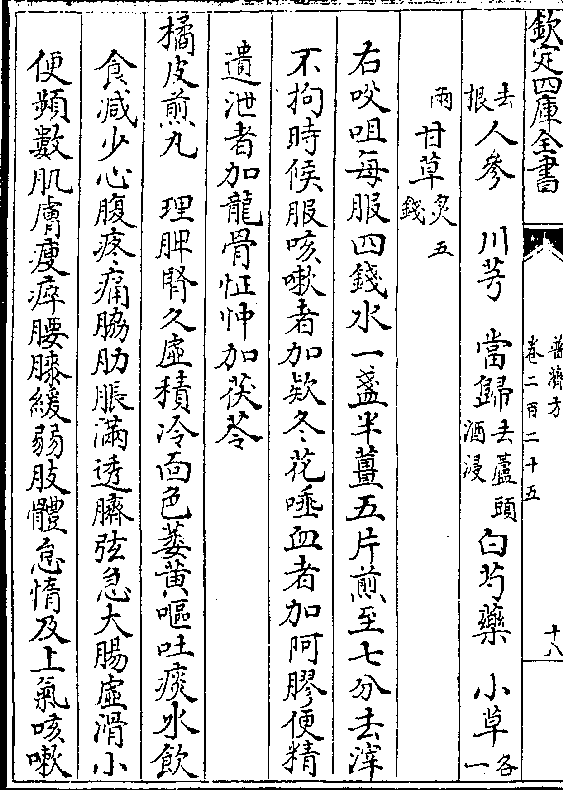 欽定四庫全書
普濟方
卷二百二十五
十八
去根人參　川芎　當歸去蘆頭酒浸白芍藥　小草各一
兩甘草炙五錢
右㕮咀每服四錢水一盞半薑五片煎至七分去滓
不拘時候服咳嗽者加欵冬花唾血者加阿膠便精
遺泄者加龍骨怔忡加茯苓
橘皮煎丸　理脾腎久虛積冷面色萎黄嘔吐痰水飲
食减少心腹疼痛脇肋脹滿透臍弦急大腸虛滑小
便頻數肌膚瘦瘁腰膝緩弱肢體怠惰及上氣咳嗽